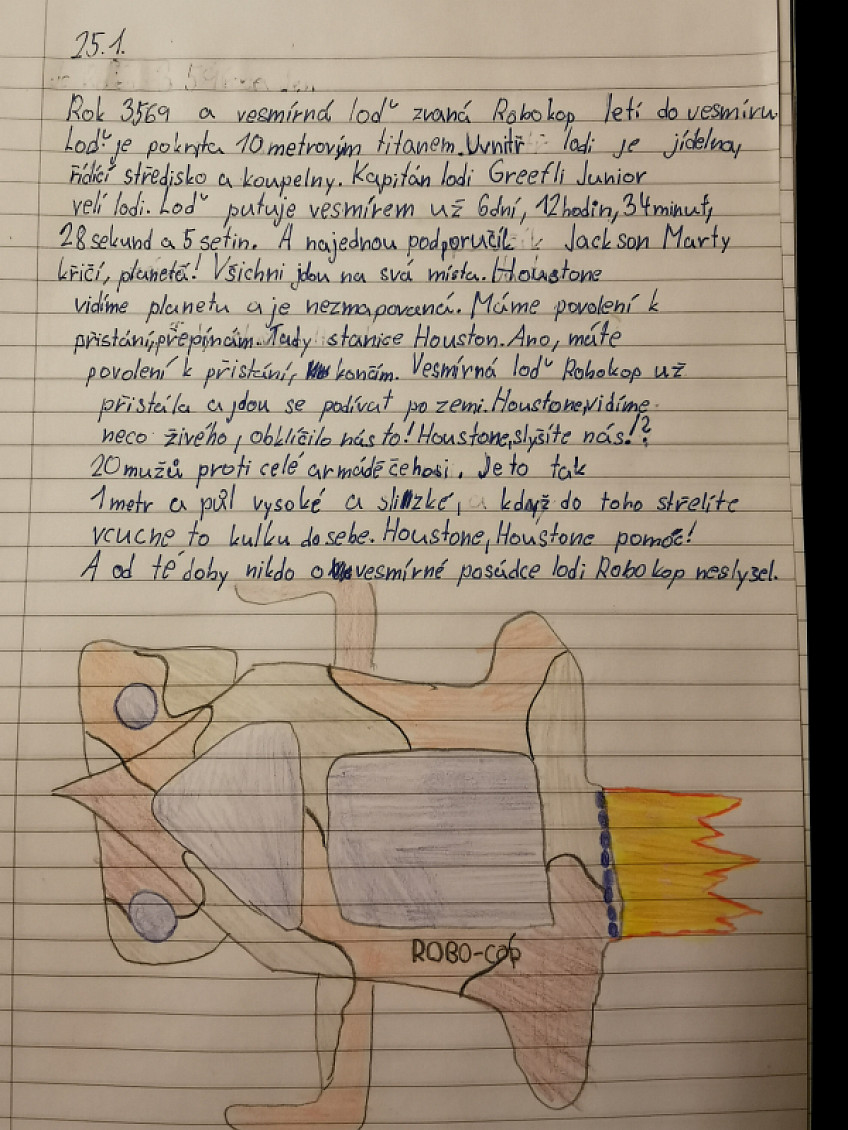 25.1.
Rok 3569 a vesmírná loď zvaná Robokop letí do vesmíru.
Loď je pokryta 10 metrovým titanem. Uvnitř lodi je jídelna,
řídící středisko a koupelny. Kapitán lodi Greefli Junior
velí lodi. Loď putuje vesmírem už 6dní, 12hodin, 34minut,
28 sekund a 5 setin. A najednou podporučík Jackson Marty
křičí, planetá! Všichni jdou na svá místa. Houstone
vidíme planetu a je nezmapovaná. Máme povolení k
přistání, přepínám. Tady stanice Houston. Ano, máte
povolení k přistání, končím. Vesmírná loď Robokop už
přistála a jdou se podívat po zemi. Houstone, vidíme
neco živého, obklíčilo nás to! Houstone, slyšíte nás!?
20 mužů proti celé armádě čehosi. Je to tak
1 metr a půl vysoké a slizké, a když do toho střelíte
vcucne to kulku do sebe. Houstone, Houstone pomoc!
A od té doby nikdo o vesmírné posádce lodi Robokop neslyšel.
ROBO-COP